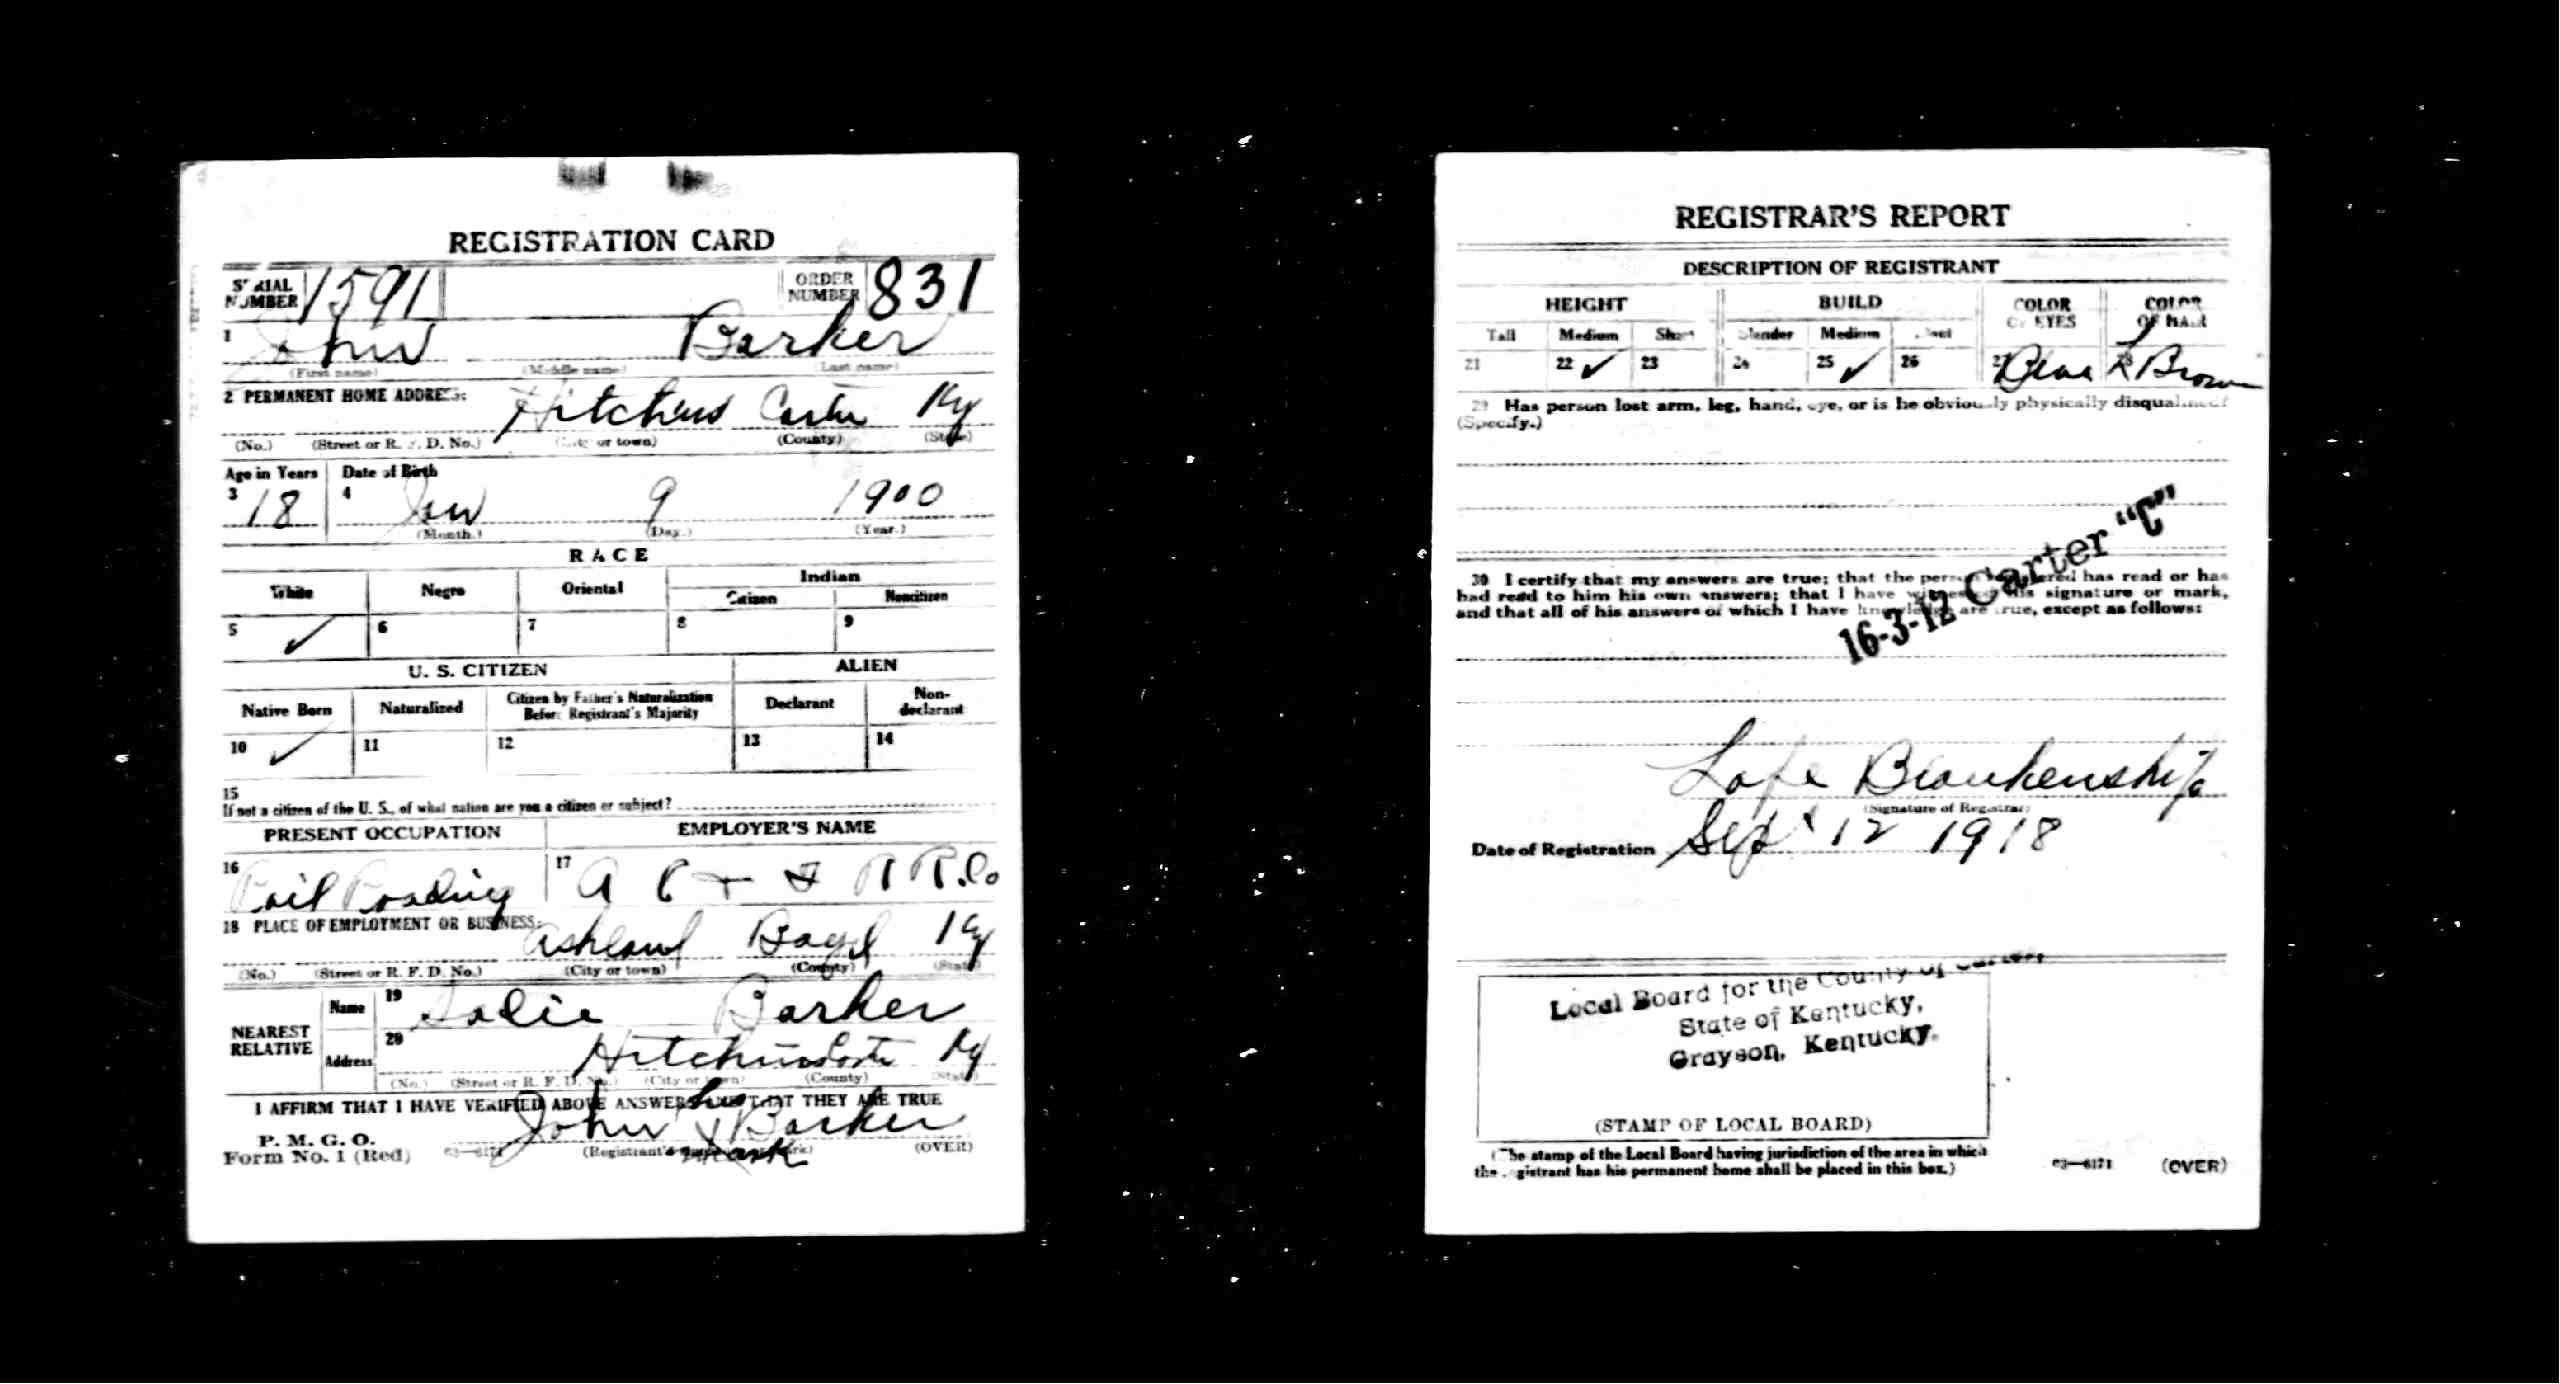 REGISTRATION CARD
SERIAL NUMBER 1591 ORDER NUMBER 831
1 John Barker
(First name) (Middle name) (Last name)
2 PERMANENT HOME ADDRESS: Hitchins Carter Ky
(No.) (Street or R. F. D. No.) (City or town) (County) (State)
Age in Years Date of Birth
3 18 4 Jan 9 1900
(Month.) (Day.) (Year.)
RACE
White Negro Oriental Indian
Citizen Noncitizen
5 ✓ 6 7 8 9
U. S. CITIZEN ALIEN
Native Born Naturalized Citizen by Father's Naturalization Before Registrant's Majority Declarant Non-declarant
10 ✓ 11 12 13 14
15
If not a citizen of the U. S., of what nation are you a citizen or subject?
PRESENT OCCUPATION EMPLOYER'S NAME
16 Rail Roading 17 A C + I R R. Co
18 PLACE OF EMPLOYMENT OR BUSINESS: Ashland Boyd Ky
(No.) (Street or R. F. D. No.) (City or town) (County) (State)
NEAREST RELATIVE Name 19 Sadie Barker
Address 20 Hitchins Carter Ky
(No.) (Street or R. F. D. No.) (City or town) (County) (State)
I AFFIRM THAT I HAVE VERIFIED ABOVE ANSWERS AND THAT THEY ARE TRUE
his
P. M. G. O.
Form No. 1 (Red) 03—6171 John X Barker
mark
(OVER)
REGISTRAR'S REPORT
DESCRIPTION OF REGISTRANT
HEIGHT BUILD COLOR OF EYES COLOR OF HAIR
Tall Medium Short Slender Medium Stout
21 22 ✓ 23 24 25 ✓ 26 27 Blue 28 L Brown
29 Has person lost arm, leg, hand, eye, or is he obviously physically disqualified?
(Specify.)
30 I certify that my answers are true; that the person registered has read or has
had read to him his own answers; that I have witnessed his signature or mark,
and that all of his answers of which I have knowledge are true, except as follows:
16-3-12 Carter "C"
Lafe Blankenship
(Signature of Registrar)
Date of Registration Sept 12 1918
Local Board for the County of Carter,
State of Kentucky,
Grayson, Kentucky.
(STAMP OF LOCAL BOARD)
(The stamp of the Local Board having jurisdiction of the area in which
the registrant has his permanent home shall be placed in this box.)
03—6171 (OVER)